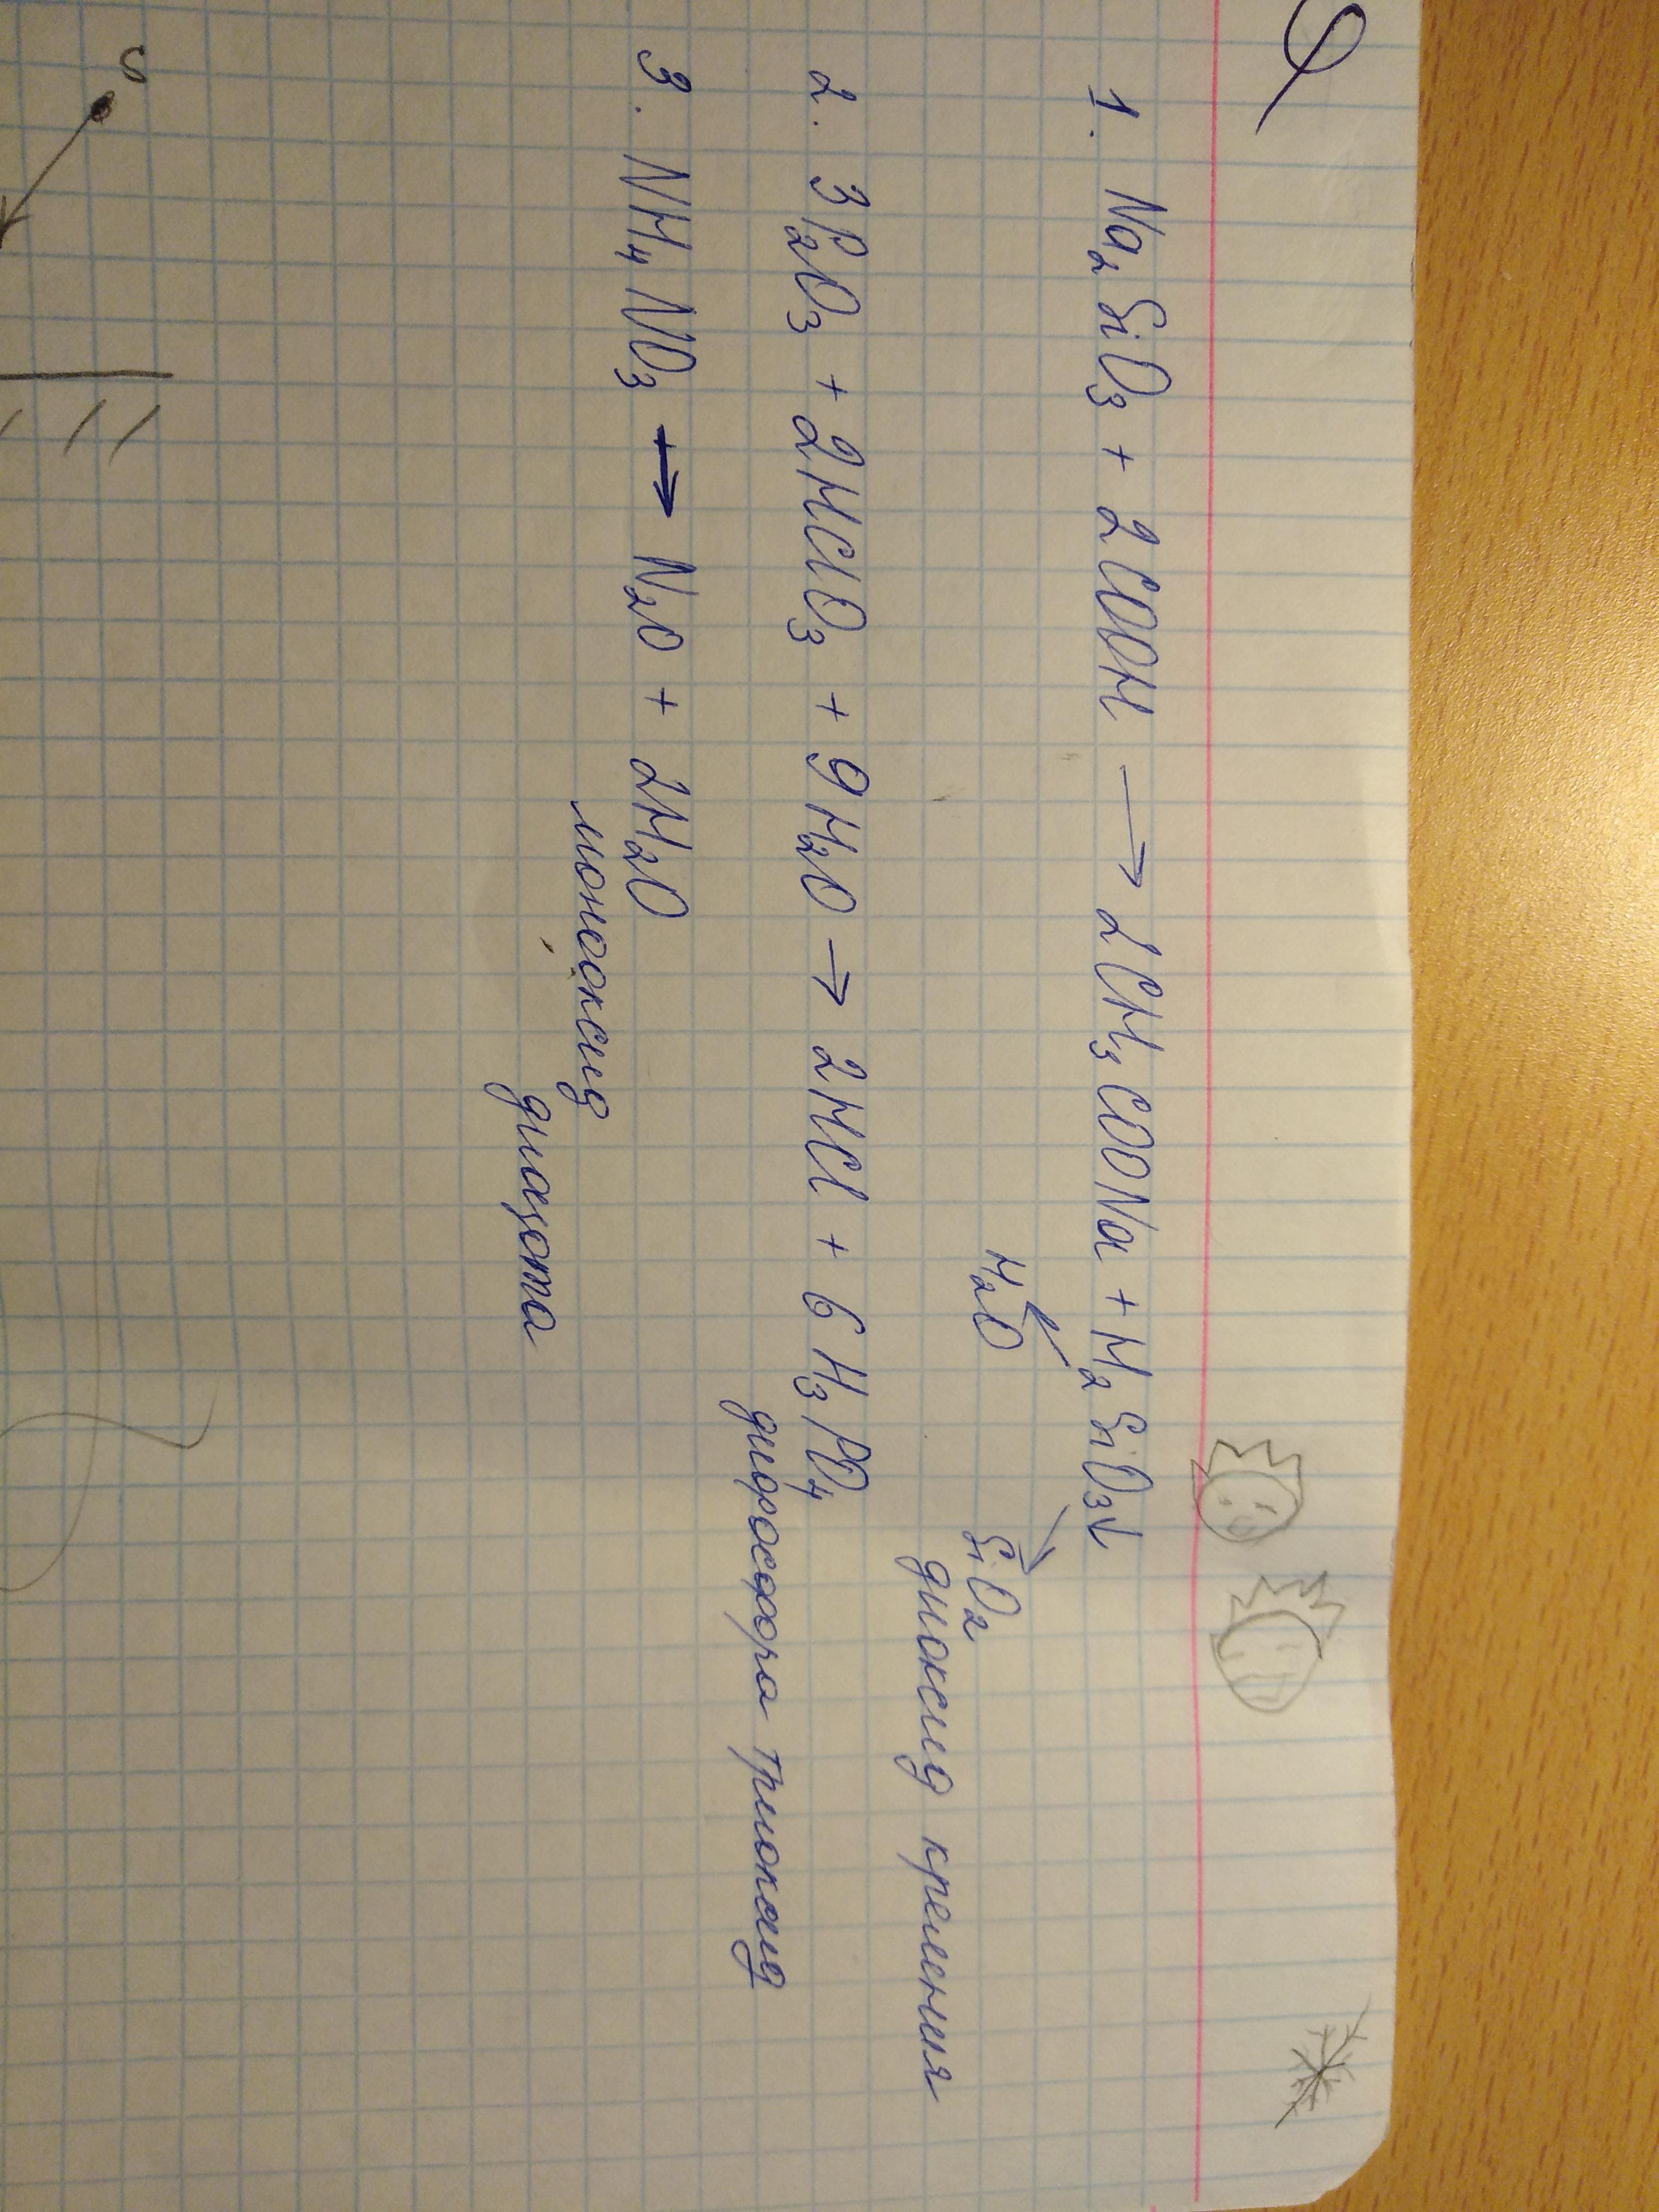 1. Na₂SiO₃ + 2COOH → 2CH₃COONa + H₂SiO₃↓
H₂O SiO₂
диоксид кремения
2. 3P₂O₃ + 2HClO₃ + 9H₂O → 2HCl + 6H₃PO₄
дифосфора триоксид
3. NH₄NO₃ → N₂O + 2H₂O
монооксид
диазота
S